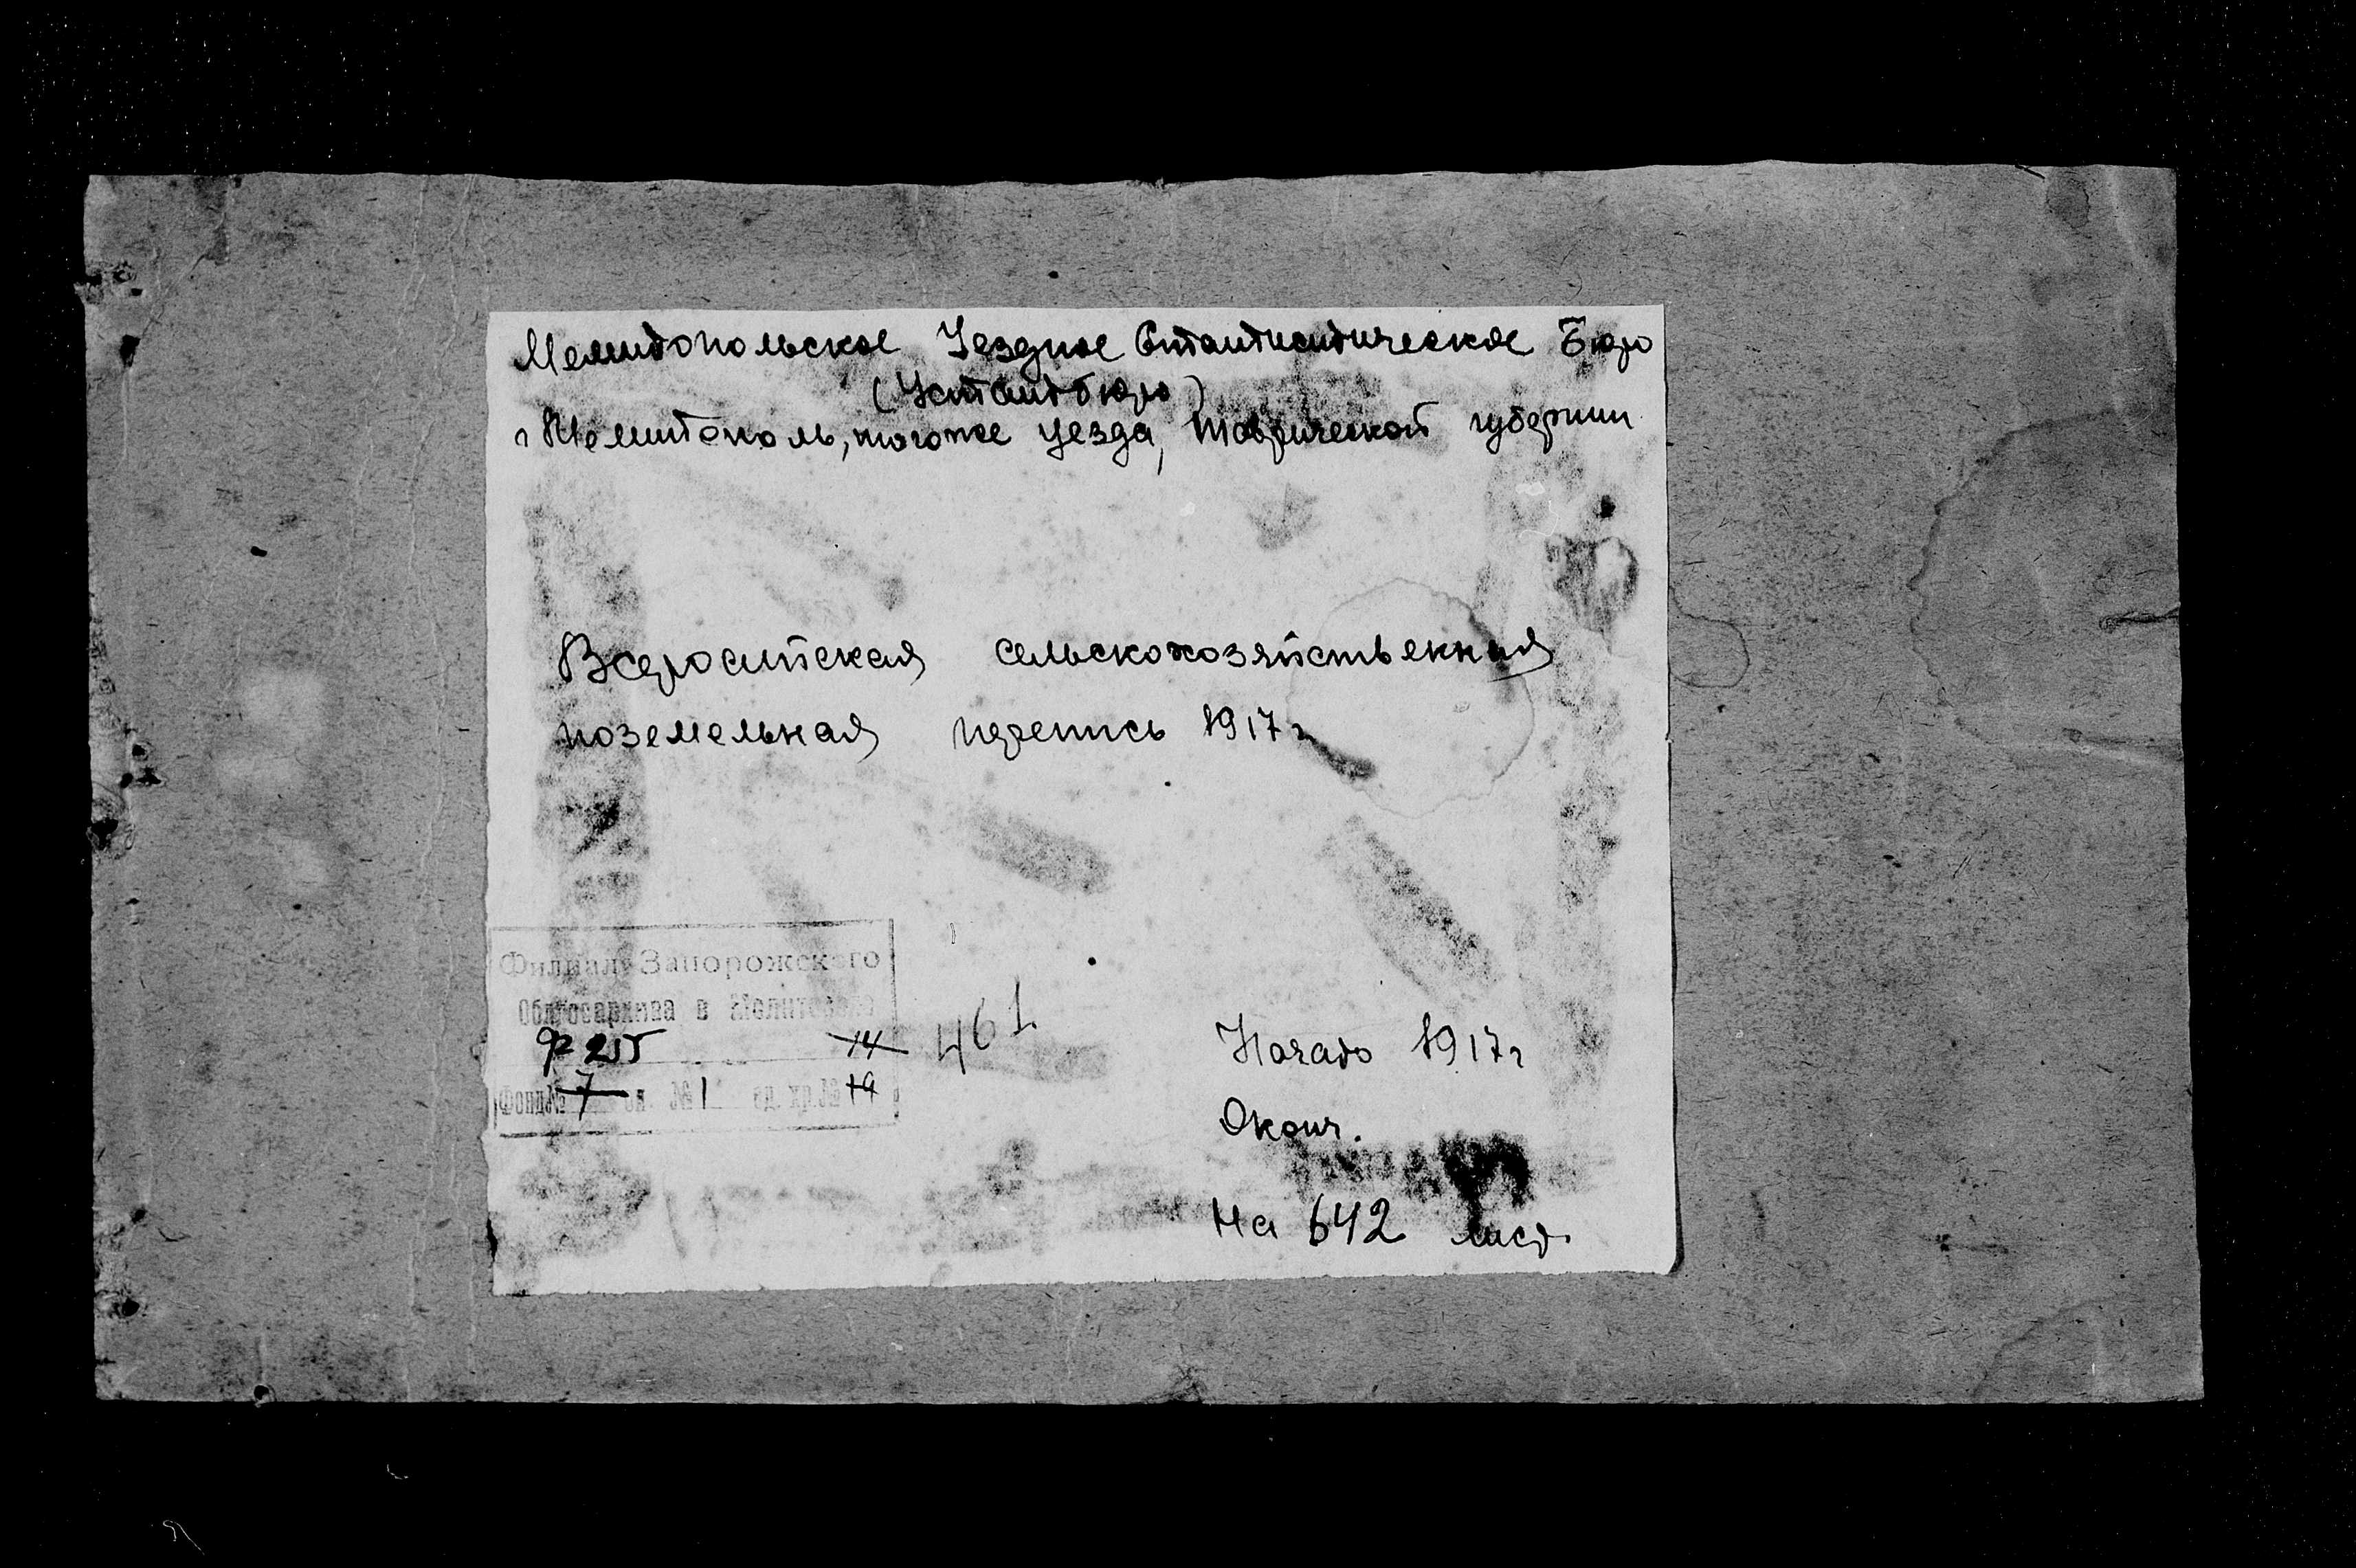 Мелитопольское Уездное Статистическое Бюро
(Устатбюро)
г Мелитополь, того же уезда, Таврической губернии
Всероссийская сельскохозяйственная
поземельная перепись 1917 г
Филиал Запорожского
Облгосархива в Мелитополе
Ф 215 14 461
Фонд№ 7 оп. №1 ед. хр.№ 19
Начато 1917 г
Оконч.
На 642 лист.